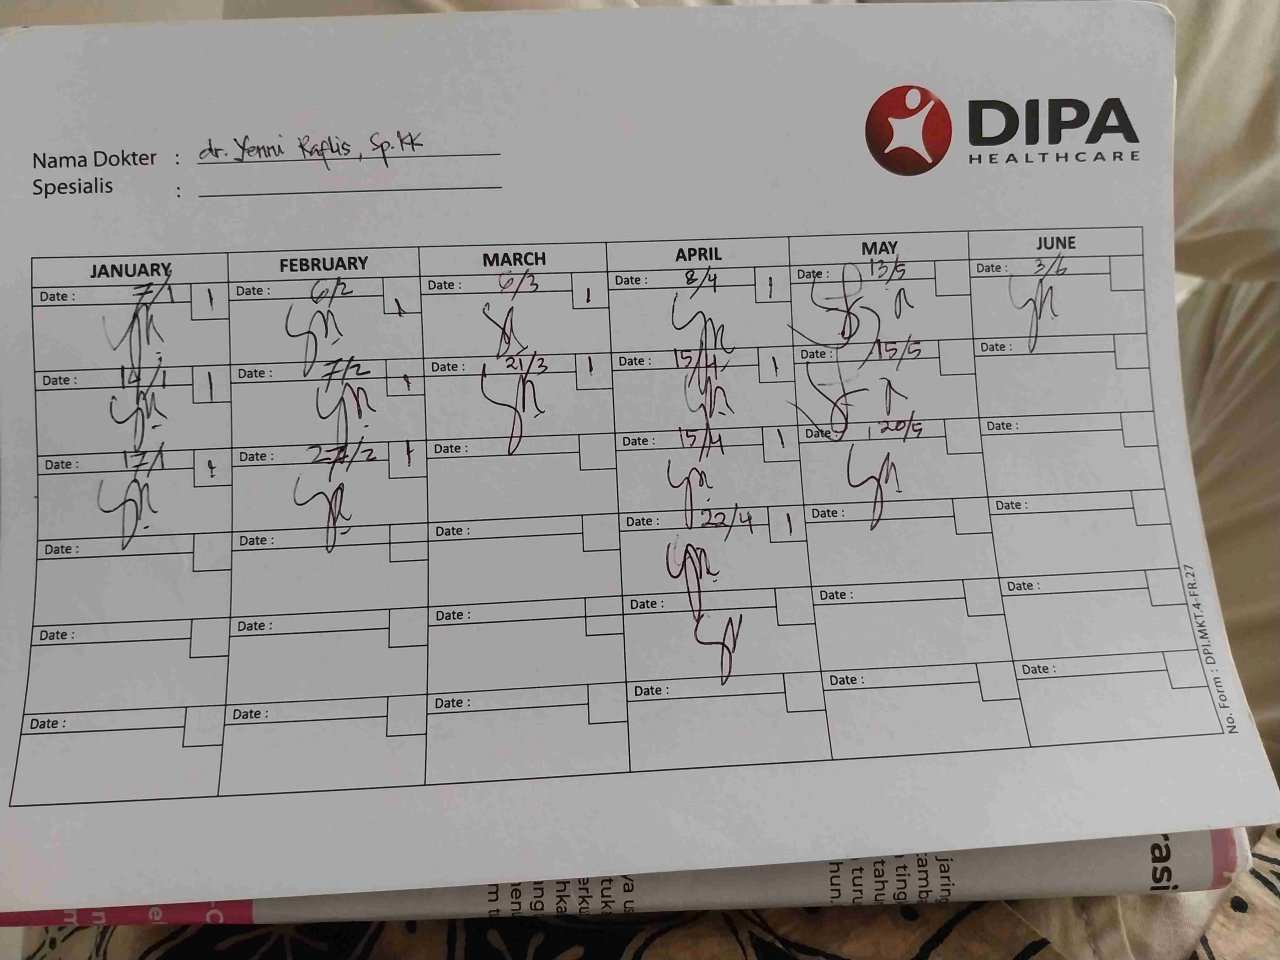 DIPA
HEALTHCARE
Nama Dokter : dr. Yenni Raflis, Sp.KK
Spesialis :
JANUARY FEBRUARY MARCH APRIL MAY JUNE
Date : 7/1 1 Date : 6/2 1 Date : 6/3 1 Date : 8/4 1 Date : 13/5 Date : 3/6
Date : 14/1 1 Date : 7/2 1 Date : 21/3 1 Date : 15/4 1 Date : 15/5 Date :
Date : 17/1 1 Date : 27/2 1 Date : Date : 15/4 1 Date : 20/5 Date :
Date : Date : Date : Date : 22/4 1 Date : Date :
Date : Date : Date : Date : Date : Date :
Date : Date : Date : Date : Date : Date :
No. Form : DPI.MKT.4-FR.27
rasi
jaring
tamb
ting
tahu
turu
hun.